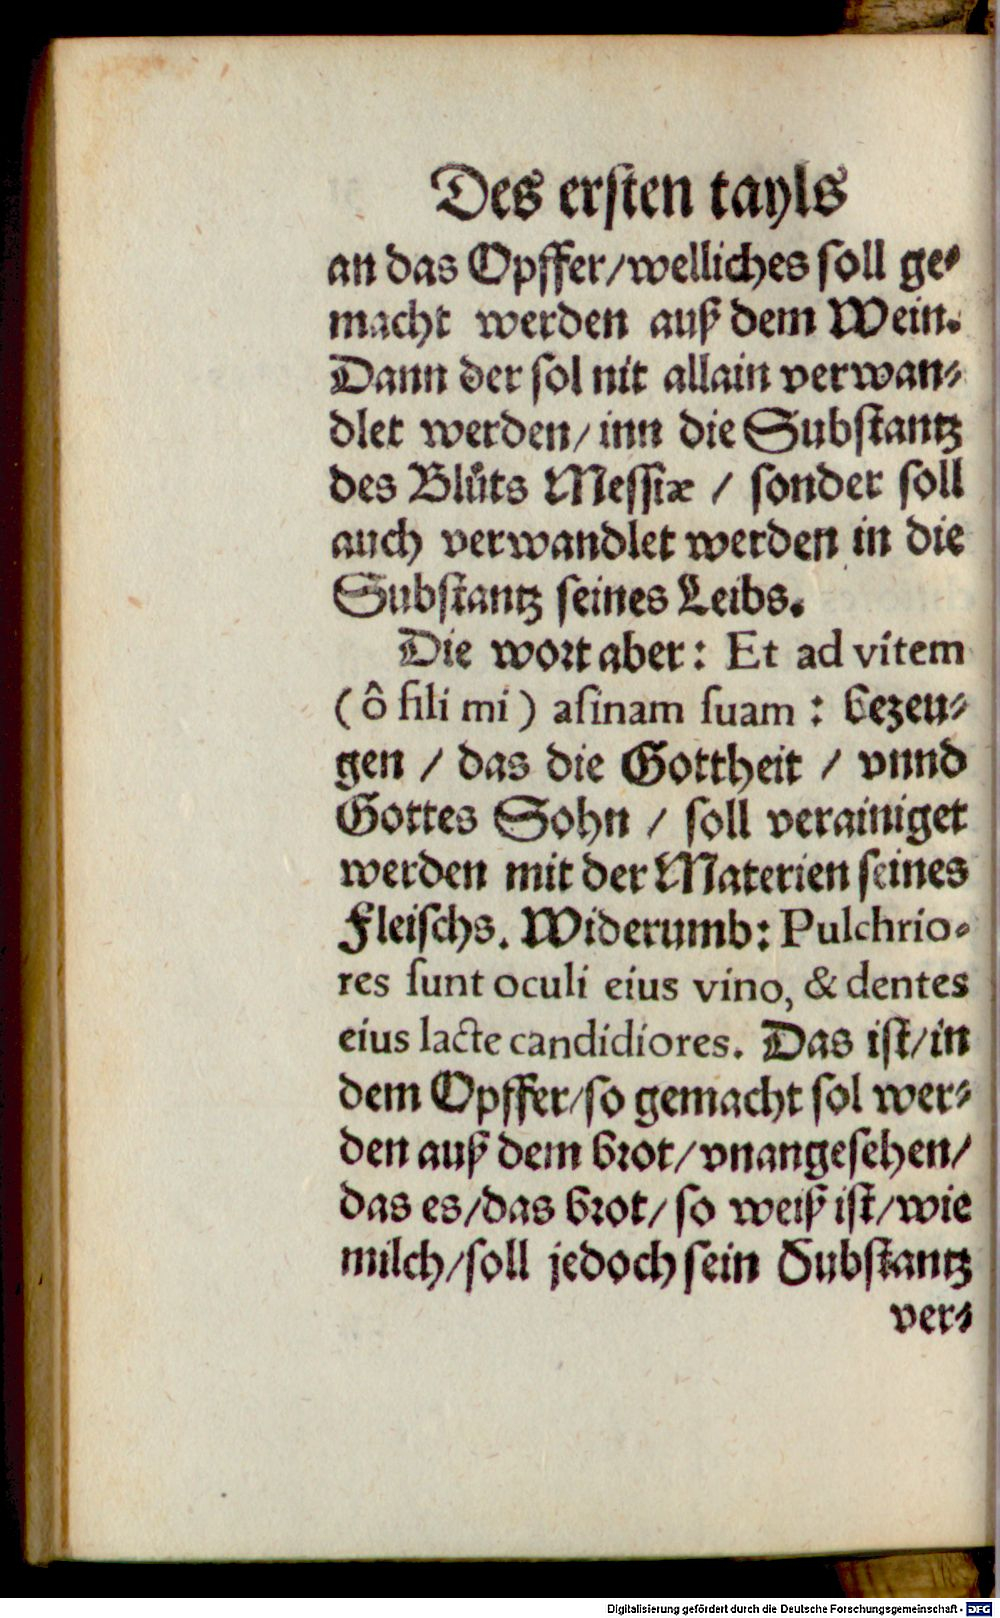 Des ersten tayls
an das Opffer/welliches soll ge-
macht werden auß dem Wein.
Dann der sol nit allain verwan-
dlet werden/ inn die Substantz
des Blůts Messiæ / sonder soll
auch verwandlet werden in die
Substantz seines Leibs.
Die wort aber: Et ad vitem
(ô fili mi) asinam suam : bezeu-
gen / das die Gottheit / vnnd
Gottes Sohn / soll verainiget
werden mit der Materien seines
Fleischs. Widerumb: Pulchrio-
res sunt oculi eius vino, & dentes
eius lacte candidiores. Das ist/in
dem Opffer/so gemacht sol wer-
den auß dem brot/vnangesehen/
das es/das brot/so weiß ist/wie
milch/soll jedoch sein Substantz
ver-
Digitalisierung gefördert durch die Deutsche Forschungsgemeinschaft - DFG